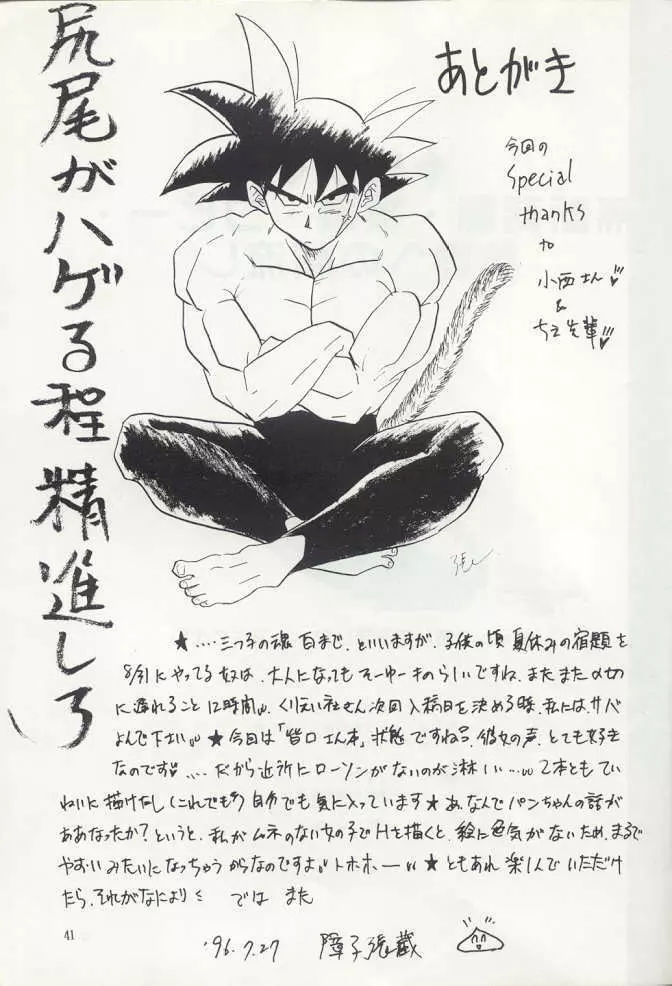 尻尾がハゲる程精進しろ
あとがき
今回の
Special
thanks
to
小西さん
&
先輩
★‥‥三つ子の魂百まで、といいますが、子供の頃夏休みの宿題を
8/31にやってる奴は、大人になってもそーゆーものらしいですね、またまた〆切
に遅れること12時間。くりえい社さん次回入稿日を決める時、私にはサバ
よんで下さい。★今回は「皆口さん本」状態ですね。彼女の声、とても好き
なのです‥‥だから近所にローソンがないのが淋しい…。2本ともてい
ねいに描けたし(これでも)自分でも気に入っています★あ、なんでパンちゃんの話が
ああなったか?というと、私がムネのない女の子でHを描くと、絵に色気がないため、まるで
やおいみたいになっちゃうからなのですよ。トホホー ★ともあれ楽しんでいただけ
たら、それがなにより では また
41
'96.7.27 障子張蔵